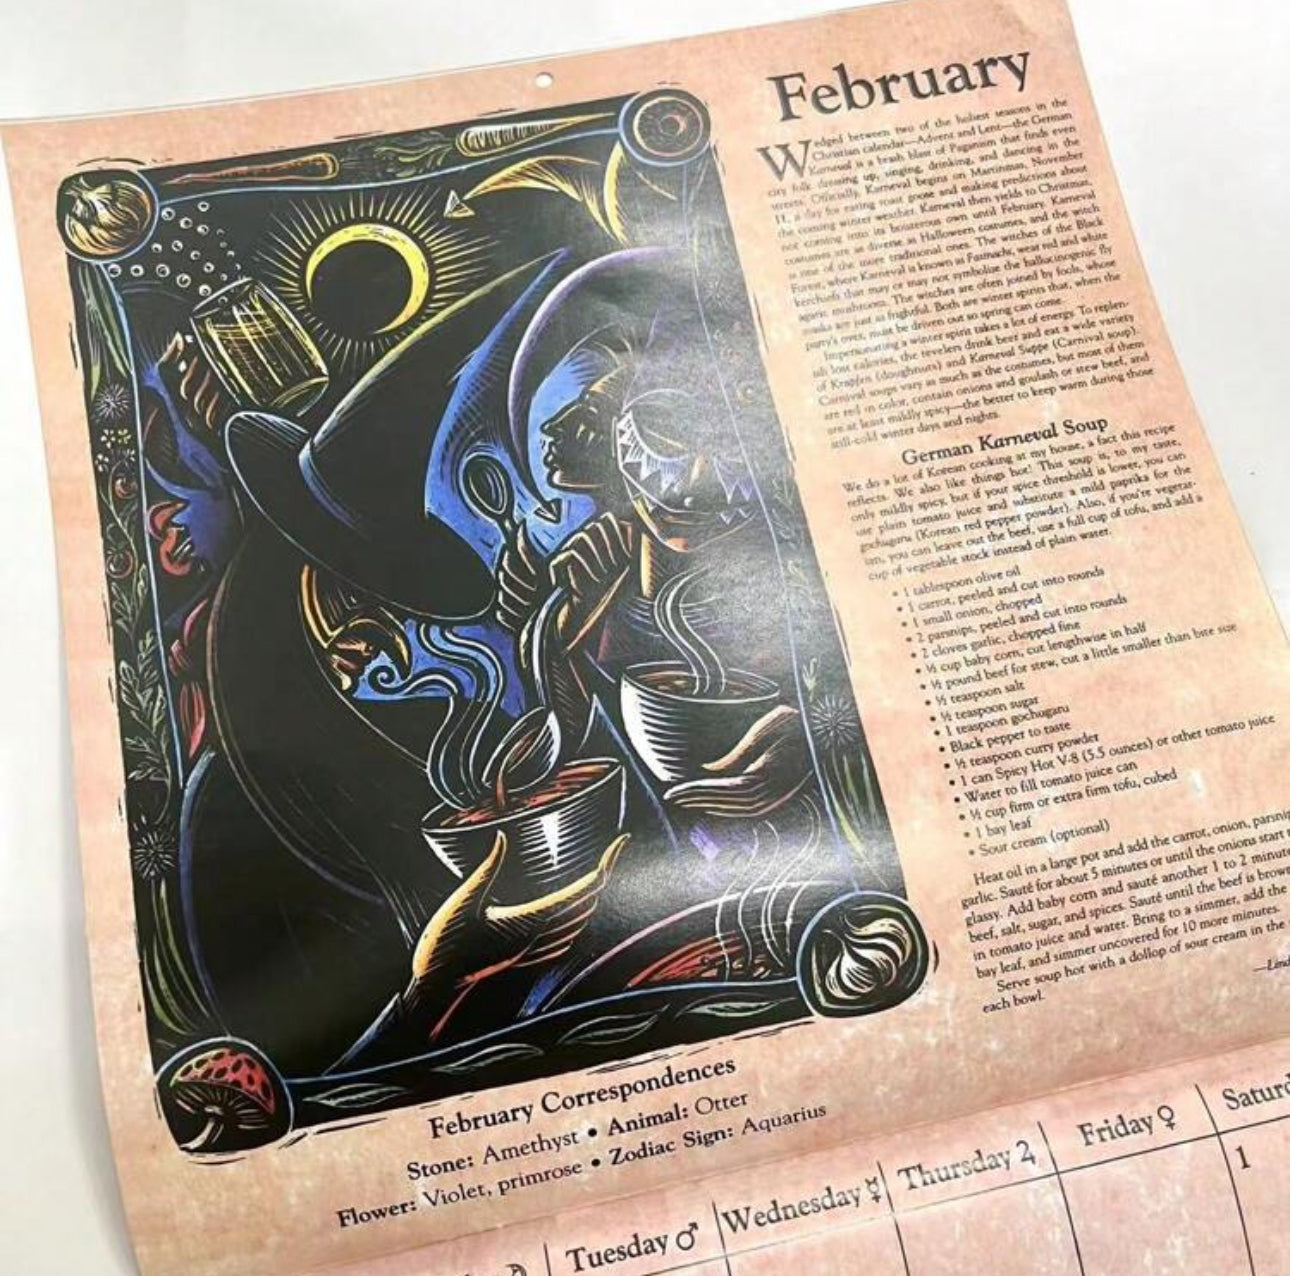 February
Wedged between two of the holiest seasons in the
Christian calendar—Advent and Lent—the German
Karneval is a brash blast of Paganism that finds even
city folk dressing up, singing, drinking, and dancing in the
streets. Officially, Karneval begins on Martinmas, November
11, a day for eating roast goose and making predictions about
the coming winter weather. Karneval then yields to Christmas,
not coming into its boisterous own until February. Karneval
costumes are as diverse as Halloween costumes, and the witch
is one of the more traditional ones. The witches of the Black
Forest, where Karneval is known as Fasnacht, wear red and white
kerchiefs that may or may not symbolize the hallucinogenic fly
agaric mushroom. The witches are often joined by fools, whose
masks are just as frightful. Both are winter spirits that, when the
party's over, must be driven out so spring can come.
Impersonating a winter spirit takes a lot of energy. To replen-
ish lost calories, the revelers drink beer and eat a wide variety
of Krapfen (doughnuts) and Karneval Suppe (Carnival soup).
Carnival soups vary as much as the costumes, but most of them
are red in color, contain onions and goulash or stew beef, and
are at least mildly spicy—the better to keep warm during those
still-cold winter days and nights.
German Karneval Soup
We do a lot of Korean cooking at my house, a fact this recipe
reflects. We also like things hot! This soup is, to my taste,
only mildly spicy, but if your spice threshold is lower, you can
use plain tomato juice and substitute a mild paprika for the
gochugaru (Korean red pepper powder). Also, if you're vegetar-
ian, you can leave out the beef, use a full cup of tofu, and add a
cup of vegetable stock instead of plain water.
• 1 tablespoon olive oil
• 1 carrot, peeled and cut into rounds
• 1 small onion, chopped
• 2 parsnips, peeled and cut into rounds
• 2 cloves garlic, chopped fine
• ½ cup baby corn, cut lengthwise in half
• ½ pound beef for stew, cut a little smaller than bite size
• ½ teaspoon salt
• ½ teaspoon sugar
• 1 teaspoon gochugaru
• Black pepper to taste
• ½ teaspoon curry powder
• 1 can Spicy Hot V-8 (5.5 ounces) or other tomato juice
• Water to fill tomato juice can
• ½ cup firm or extra firm tofu, cubed
• 1 bay leaf
• Sour cream (optional)
Heat oil in a large pot and add the carrot, onion, parsnip
garlic. Sauté for about 5 minutes or until the onions start
glassy. Add baby corn and sauté another 1 to 2 minute
beef, salt, sugar, and spices. Sauté until the beef is brow
in tomato juice and water. Bring to a simmer, add the
bay leaf, and simmer uncovered for 10 more minutes.
Serve soup hot with a dollop of sour cream in the
each bowl.
—Lind
February Correspondences
Stone: Amethyst • Animal: Otter
Flower: Violet, primrose • Zodiac Sign: Aquarius
Tuesday ♂ Wednesday ☿ Thursday ♃ Friday ♀ Saturd
1